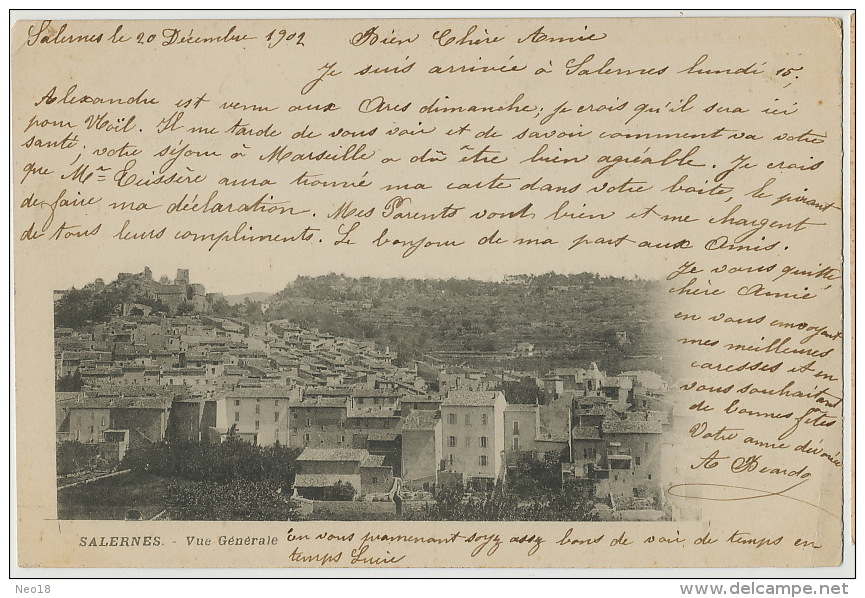 Salernes le 20 Décembre 1902 Bien Chère Amie
Je suis arrivée à Salernes lundi 15;
Alexandre est venu aux Arcs dimanche; je crois qu'il sera ici
pour Noël. Il me tarde de vous voir et de savoir comment va votre
santé; votre séjour à Marseille a dû être bien agréable. Je crois
que Mr aura trouvé ma carte dans votre boite, le priant
de faire ma déclaration. Mes Parents vont bien et me chargent
de tous leurs compliments. Le bonjour de ma part aux Amis.
Je vous quitte
chère Amie
en vous envoyant
mes meilleures
caresses et en
vous souhaitant
de bonnes fêtes
Votre amie dévouée
A
SALERNES. - Vue Générale
en vous promenant soyez assez bons de voir de temps en
temps
Neo18
www.delcampe.net